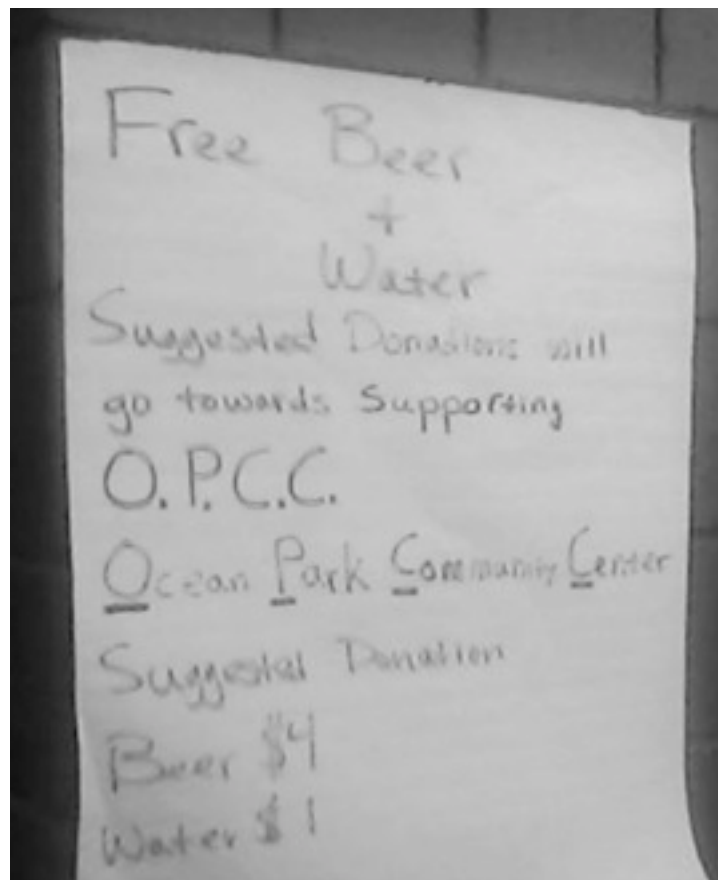 Free Beer
+
Water
Suggested Donations will
go towards Supporting
O.P.C.C.
Ocean Park Community Center
Suggested Donation
Beer $4
Water $1